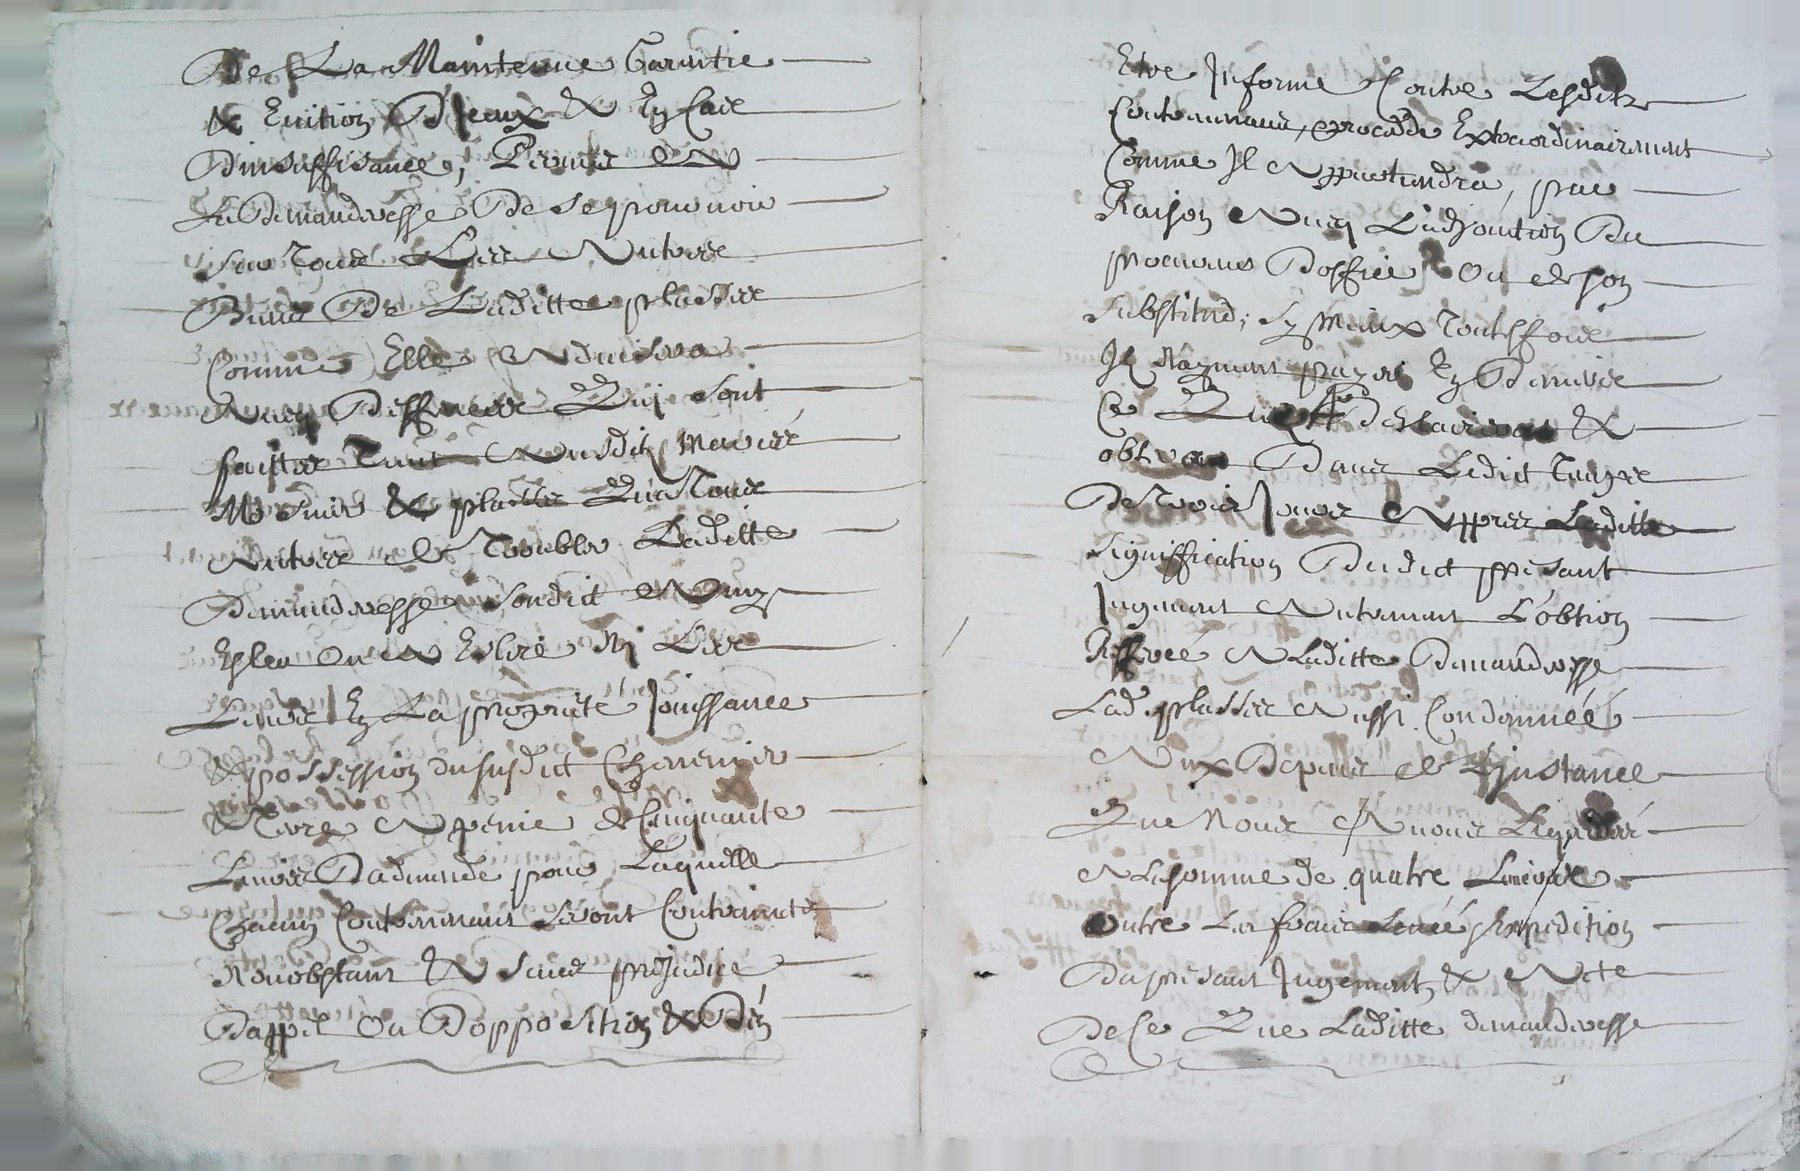 De La Maintenue Garentie
& Euition D'Jceux & En Cas
Dinsuffisance, Permis A
La Demandresse De se pouruoir
Sur Tous Les Autres
Biens De Laditte plassie
Comme Elle Aduisera
Auec Deffences Quj sont
faittes Tant Ausdits Mariés
& plassie Qu'a Tous
Autres de Troubler Laditte
Demanderesse Sondict Amy
Esleu Ou A Eslire Nj Les
Leurs En La proprieté Jouissance
& possession dusuSdict
& Terre A penne de Cinquante
Liures Dademande pour Laquelle
Chacun Contreuenant Seront Contraints
Nonobstant & Sans prejudice
Dappel Ou Dopposition & Den
Etre Jnformé Contre Lesdits
Contreuenants, procedé Extraordinairement
Comme Jl Appartiendra, par
Raison Auec L'adjonction Du
procureur Doffice Ou de son
Substitud; Sy Mieux Touteffois
Jl N'ayment payer En Deniers
Ce Que Desclaireront &
obteront Dans Ledict Temps
De Trois Jours Appres Laditte
Signiffication Dudict presant
Jugement Autrement L'obtion
Refferée A Laditte Demandresse
Lad. plassie Aussi Condamnée
Aux Depans de L'jnstance
Que Nous Auons Liquidés
A La somme de quatre Liures
outre Les frais Leuée & Expedition
Du presant Jugement & Acte
De Ce Que Laditte demanderesse